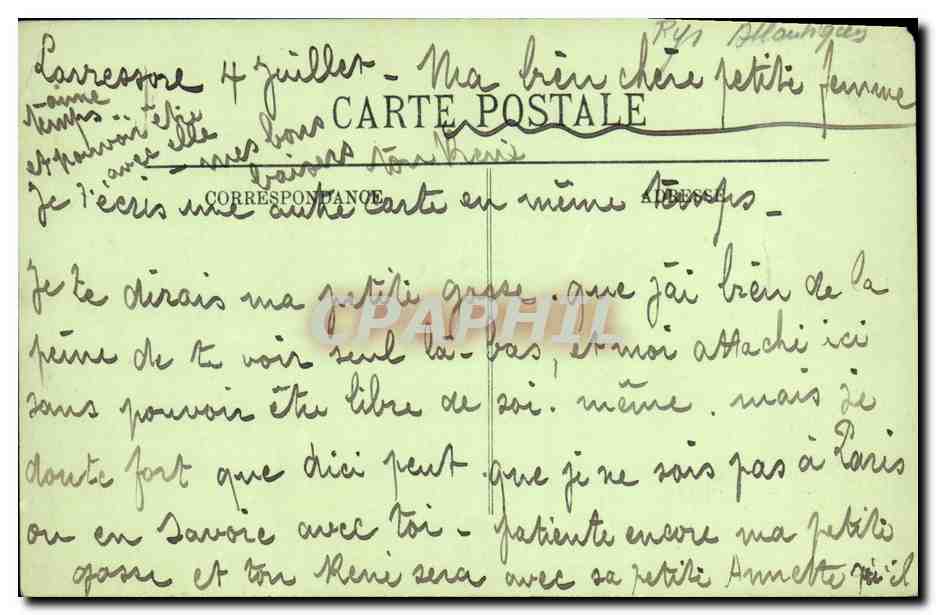 Pyr Atlantiques
Larressore 4 Juillet - Ma bien chère petite femme
CARTE POSTALE
CORRESPONDANCE
ADRESSE
Je t'écris une autre carte en même temps -
Je te dirais ma petite gosse. que j'ai bien de la
peine de te voir seul là-bas, et moi attaché ici
sans pouvoir être libre de soi. même. mais je
doute fort que d'ici peut. que je ne sois pas à Paris
ou en Savoie avec toi - patiente encore ma petite
gosse et ton René sera avec sa petite Annette qu'il
aime
temps
et pouvoir être
avec elle
- mes bons
baisers ton René
CPAPHIL